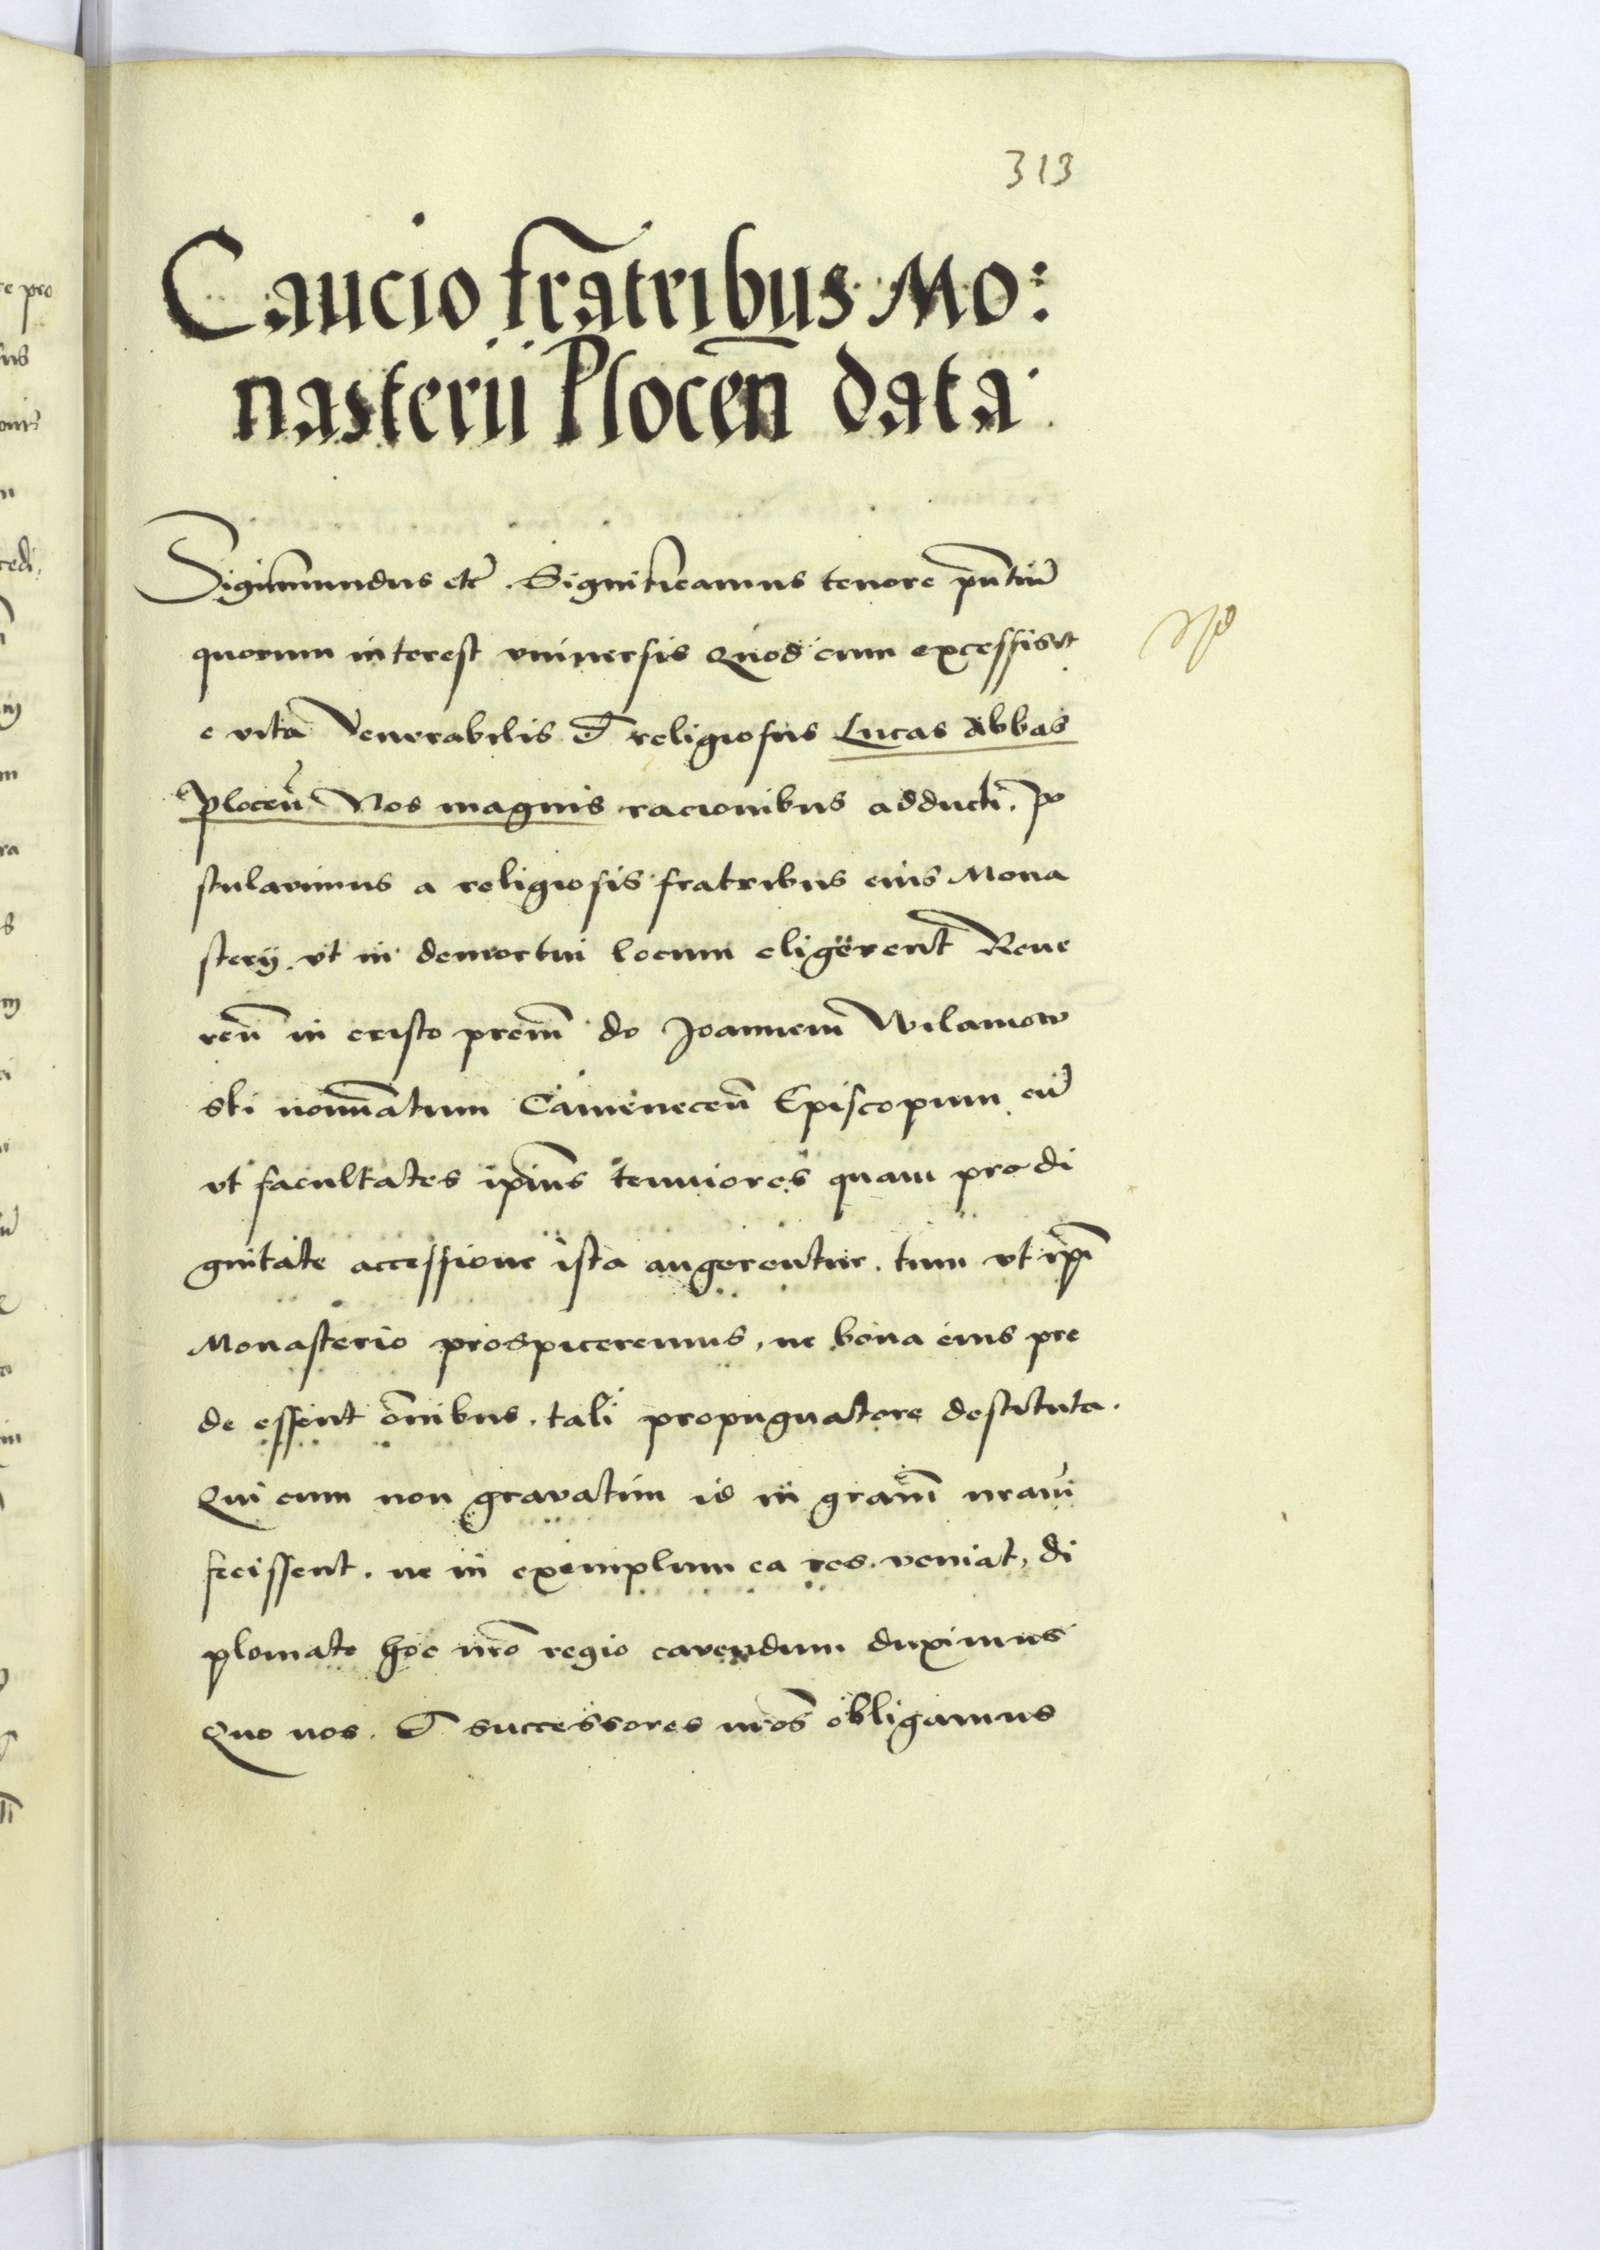 313
Caucio fratribus Mo:
nasterii Plocen̄ data.
Sigismundus etc̄. Significamus tenore pn̄tiū
quorum interest vniuersis Quod cum excessisset
e vita Venerabilis et religiosus Lucas Abbas
Plocen̄ Nos magnis racionibus adducti. Po
stulavimus a religiosis fratribus eius Mona
sterij. vt in demortui locum eligerent Reue
ren̄ in cristo prem̄ do Joannem Wilamow
ski nomīatum Camenecen̄ Episcopum. cū
vt facultates ipīus tenuiores quam pro di
gnitate accessione ista augerentur. tum vt ip̄i
Monasterio prospiceremus, ne bona eius pre
de essent om̄ibus. tali propugnatore destituta.
Qui cum non gravatim id in gram̄ nram̄
fecissent. ne in exemplum ea res. veniat, di
plomate hoc nrō regio cavendum duximus
Quo nos. et successores nros̄ obligamus